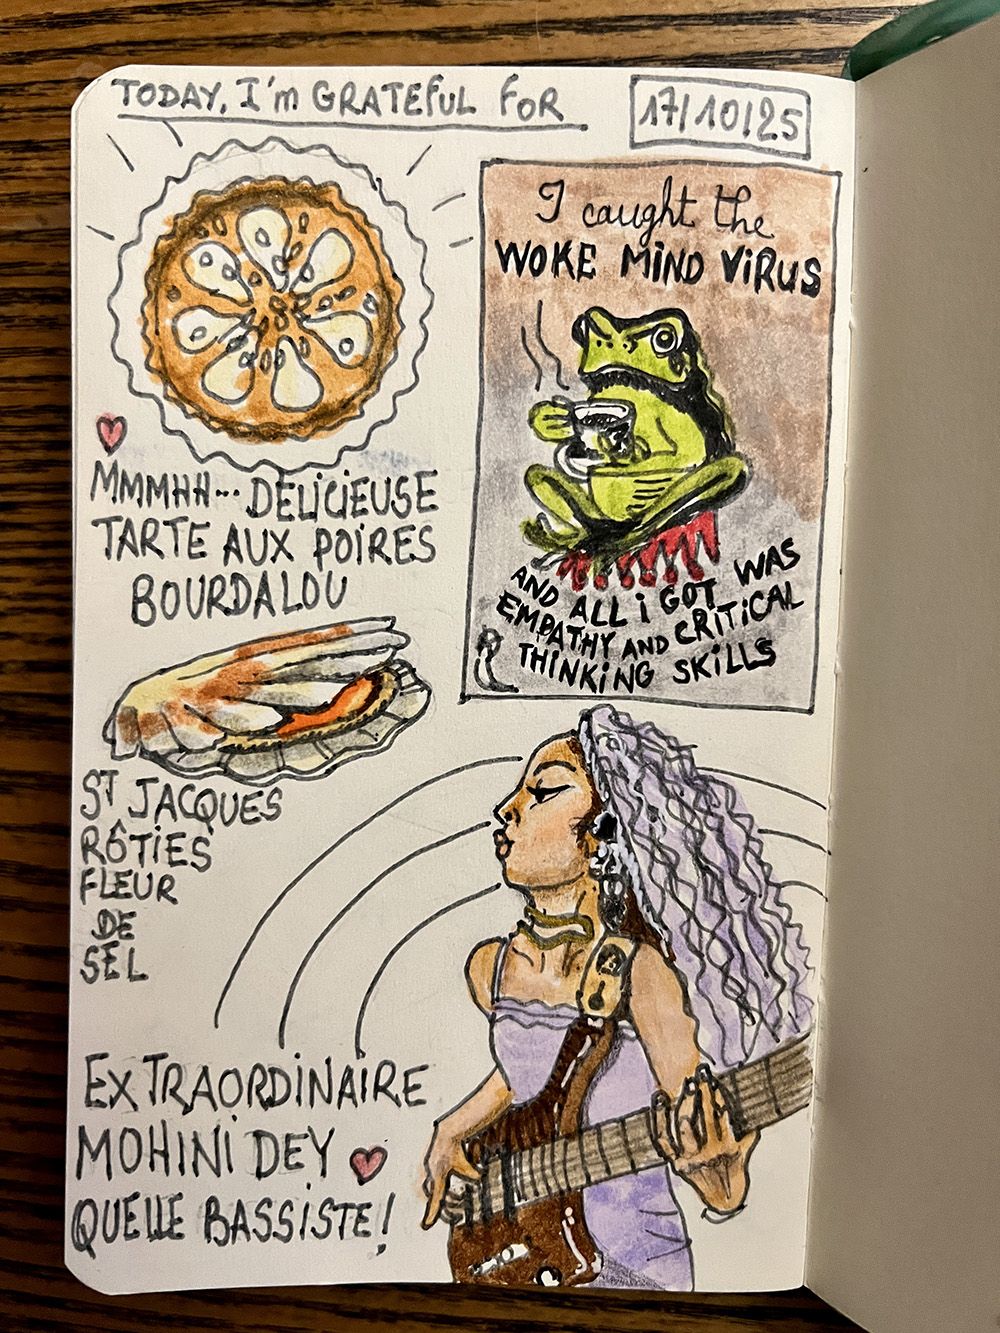 TODAY, I'm GRATEFUL FOR
17/10/25
I caught the
WOKE MIND VIRUS
AND ALL i GOT WAS
EMPATHY AND CRITICAL
THINKING SKILLS
MMMHH... DÉLICIEUSE
TARTE AUX POIRES
BOURDALOU
ST JACQUES
RÔTIES
FLEUR
DE
SEL
EXTRAORDINAIRE
MOHINI DEY
QUELLE BASSISTE!